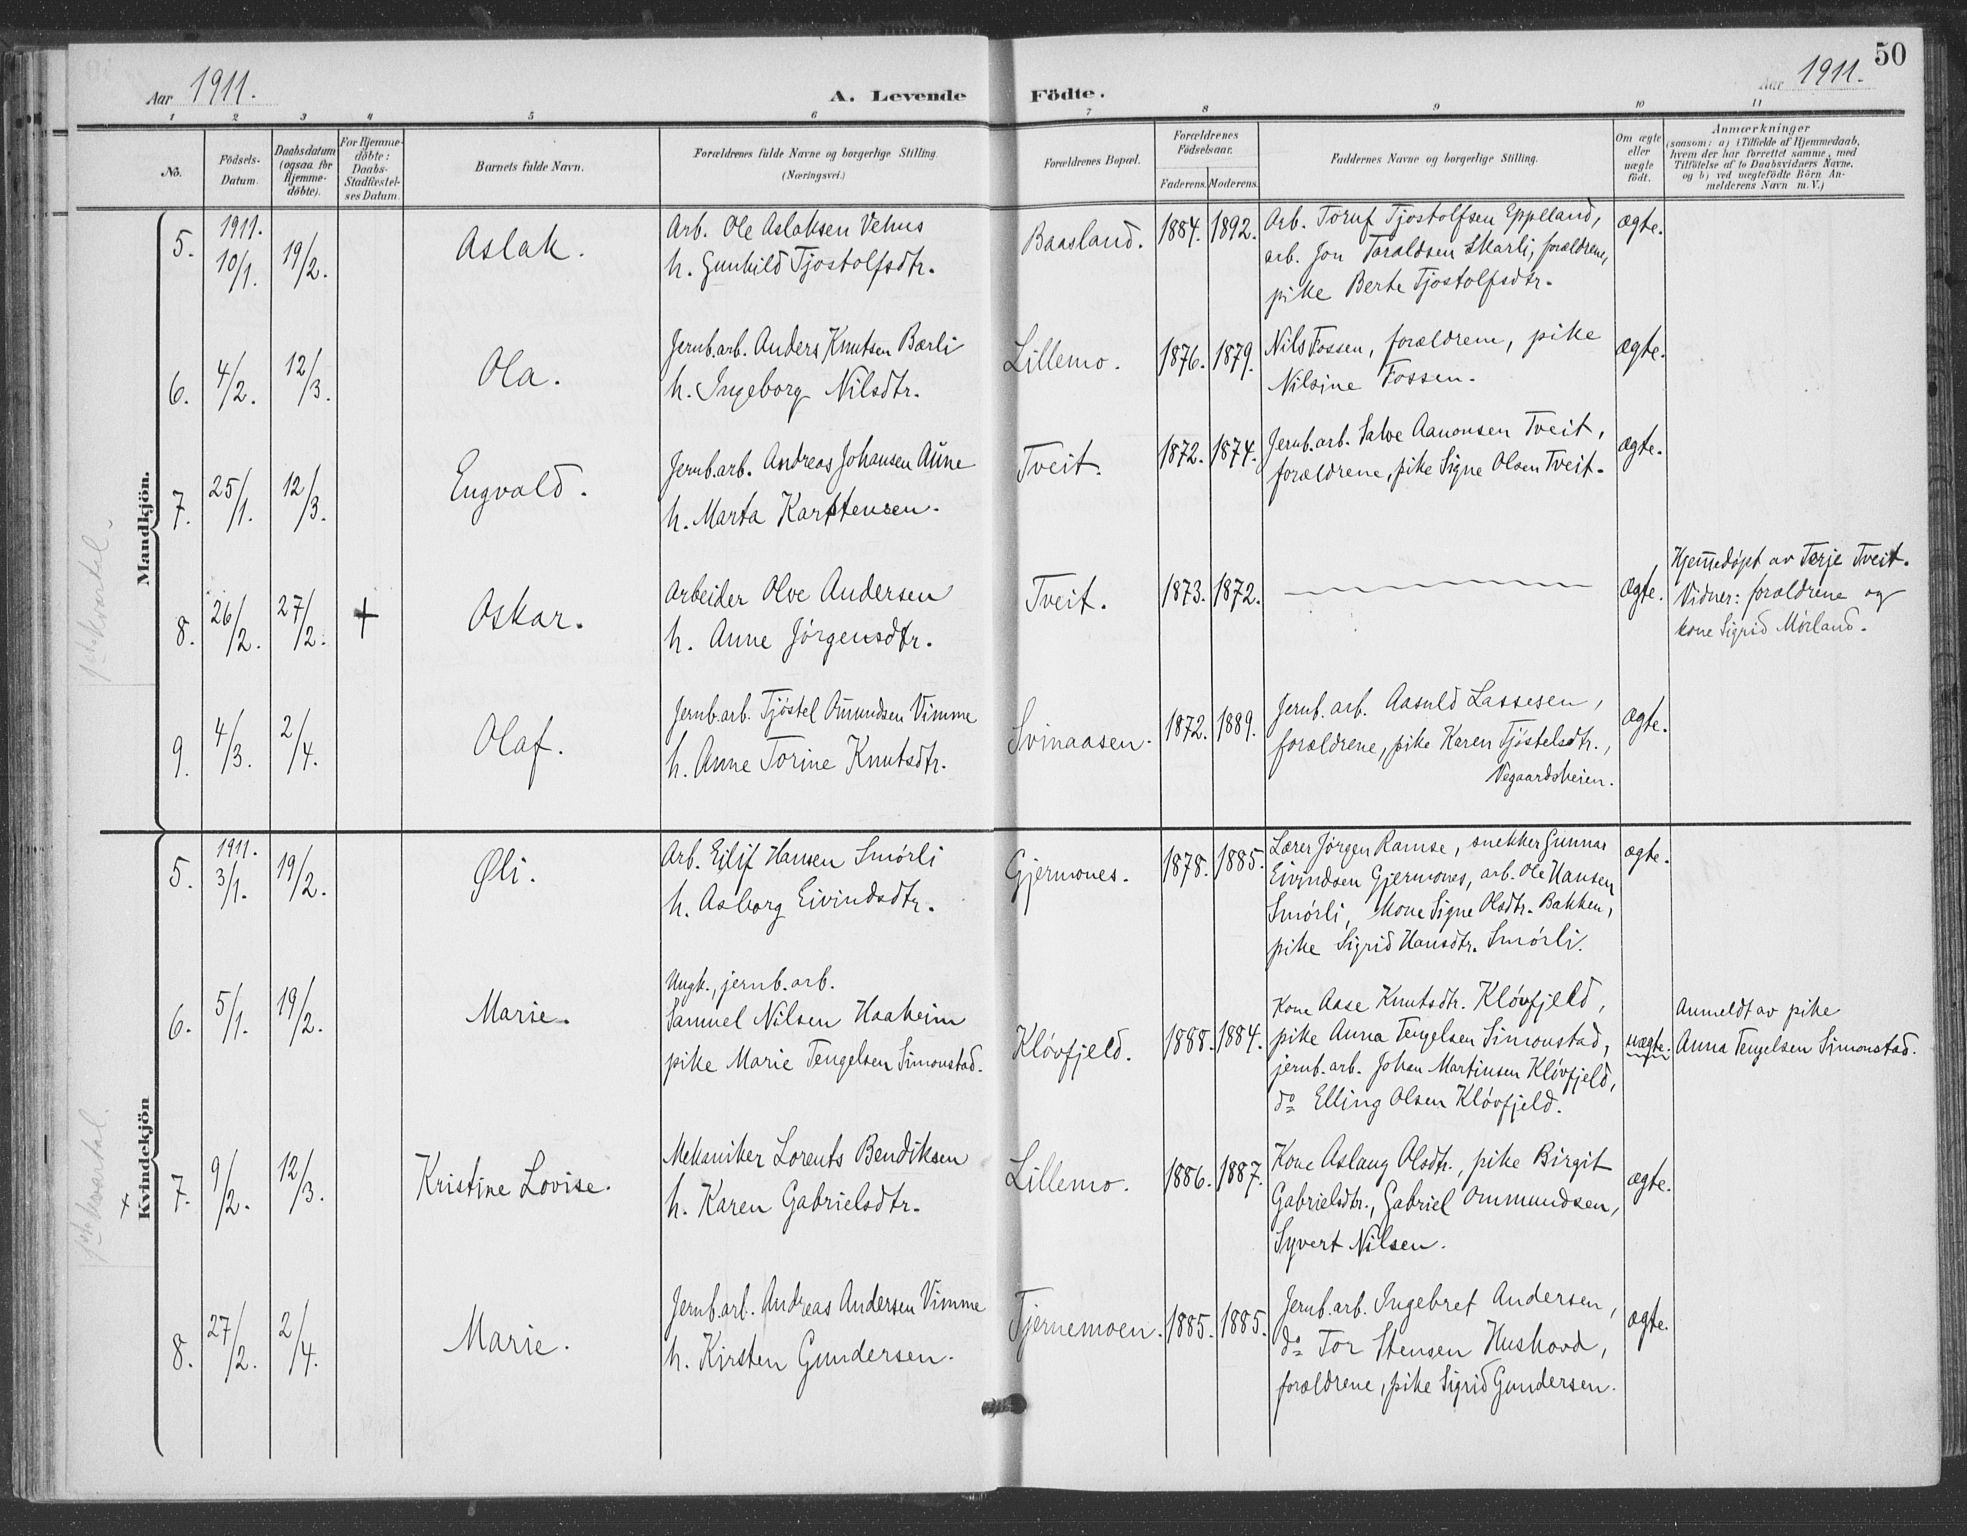 Aar 1911.
A. Levende Födte.
Aar 1911.
50
1 2 3 4 5 6 7 8 9 10 11
No.
Födsels-Datum.
Daabsdatum (ogsaa for Hjemmedöbte).
For Hjemmedöbte: Daabs-Stadfæstelses Datum.
Barnets fulde Navn.
Forældrenes fulde Navne og borgerlige Stilling. (Næringsvei.)
Forældrenes Bopæl.
Forældrenes Födselsaar.
Faderens. Moderens.
Faddernes Navne og borgerlige Stilling.
Om ægte eller uægte födt.
Anmærkninger
(saasom: a) i Tilfælde af Hjemmedaab, hvem der har forrettet samme, med Tilföielse af to Daabsvidners Navne, og b) ved uægtefödte Börn Anmelderens Navn m. V.)
Mandkjön.
1ste kvartal.
5. 1911. 10/1. 19/2. Aslak.
Arb. Ole Aslaksen Vehus
h. Gunhild Tjostolfsdtr.
Baasland. 1884. 1892.
Arb. Toruf Tjostolfsen Eppeland,
arb. Jon Taraldsen Skarli, forældrene,
pike Berte Tjostolfsdtr.
ægte.
6. 4/2. 12/3. Ola.
Jernb.arb. Anders Knutsen Bærli
h. Ingeborg Nilsdtr.
Lillemo. 1876. 1879.
Nils Fossen, forældrene, pike
Nilsine Fossen.
ægte.
7. 25/1. 12/3. Engvald.
Jernb.arb. Andreas Johansen Aune
h. Marta Karstensen.
Tveit. 1872. 1874.
Jernb.arb. Salve Aanonsen Tveit,
forældrene, pike Signe Olsen Tveit.
ægte.
8. 26/2. 27/2. + Oskar.
Arbeider Olve Andersen
h. Anne Jørgensdtr.
Tveit. 1873. 1872.
ægte.
Hjemmedøpt av Terje Tveit.
Vidner: forældrene og
kone Sigrid Mørland.
9. 4/3. 2/4. Olaf.
Jernb.arb. Tjøstel Omundsen Vimme
h. Anne Torine Knutsdtr.
Svinaasen. 1872. 1889.
Jernb.arb. Aasuld Lassesen,
forældrene, pike Karen Tjøstelsdtr.,
Vegaardsheien.
ægte.
Kvindekjön
+
1ste kvartal.
5. 1911. 3/1. 19/2. Øli.
Arb. Eilif Hansen Smørli
h. Asborg Eivindsdtr.
Gjermones. 1878. 1885.
Lærer Jørgen Ramse, snekker Gunnar
Eivindsen Gjermones, arb. Ole Hansen
Smørli, kone Signe Olsdtr. Bakken,
pike Sigrid Hansdtr. Smørli.
ægte.
6. 5/1. 19/2. Marie.
Ungk., jernb.arb.
Samuel Nilsen Haaheim
pike Marie Tengelsen Simonstad.
Kløvfjeld. 1888. 1884.
Kone Aase Knutsdtr. Kløvfjeld,
pike Anna Tengelsen Simonstad,
jernb.arb. Johan Martinsen Kløvfjeld,
do Elling Olsen Kløvfjeld.
uægte.
Anmeldt av pike
Anna Tengelsen Simonstad.
7. 9/2. 12/3. Kristine Lovise.
Mekaniker Lorents Bendiksen
h. Karen Gabrielsdtr.
Lillemo. 1886. 1887.
Kone Aslaug Olsdtr., pike Birgit
Gabrielsdtr., Gabriel Ommundsen,
Syvert Nilsen.
ægte.
8. 27/2. 2/4. Marie.
Jernb.arb. Andreas Andersen Vimme
h. Kirsten Gundersen.
Tjernemoen. 1885. 1885.
Jernb.arb. Ingebret Andersen,
do Tor Stensen Huskovd,
forældrene, pike Sigrid Gundersen.
ægte.